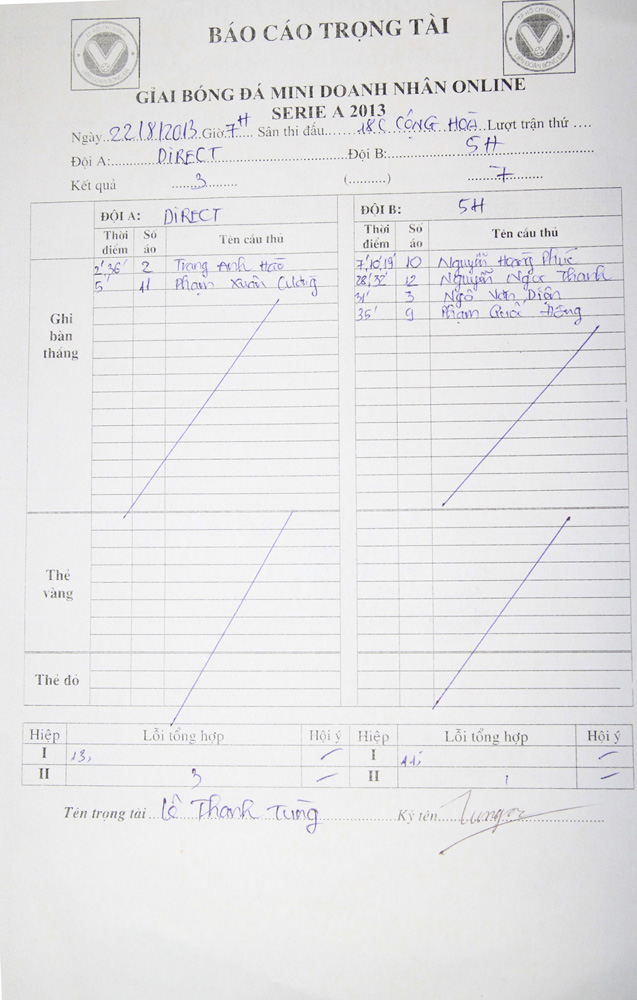 BÁO CÁO TRỌNG TÀI
GIẢI BÓNG ĐÁ MINI DOANH NHÂN ONLINE
SERIE A 2013
Ngày 22/8/2013 Giờ 7H Sân thi đấu 18C CỘNG HOÀ Lượt trận thứ ....
Đội A: DIRECT Đội B: 5H
Kết quả 3 (..........) 7
ĐỘI A: DIRECT ĐỘI B: 5H
Thời điểm Số áo Tên cầu thủ Thời điểm Số áo Tên cầu thủ
Ghi bàn thắng
2', 36' 2 Trang Anh Hào 7',10',19' 10 Nguyễn Hoàng Phúc
5' 11 Phạm Xuân Cường 28',32' 12 Nguyễn Ngọc Thanh
31' 3 Ngô Văn
35' 9 Phạm
Thẻ vàng
Thẻ đỏ
Hiệp Lỗi tổng hợp Hội ý Hiệp Lỗi tổng hợp Hội ý
I I
II 3 II 1
Tên trọng tài Lê Thanh Tùng Ký tên Tung